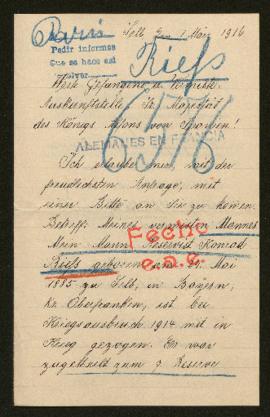 Paris
Selb, den 1. März 1916
Pedir informes
Que se haos asi
Riefs
Gefangene u. Vermißte
Auskunftstelle Sr. Majestät
des Königs Alfons von Spanien!
ALEMANES EN FRANCIA
Ich erlaube mir, mit der
freundlichsten Anfrage, mit
einer Bitte an Sie zu
Betreff: Meines vermißten Mannes
Mein Mann Reservist Konrad
Fecho
Riefs geboren am 21. Mai
e.a.c.
1885 zu Selb, in Bayern,
Kr. Oberfranken, ist bei
Kriegsausbruch 1914 mit in
Krieg gezogen. Er war
zugeteilt zum 7. Reserve